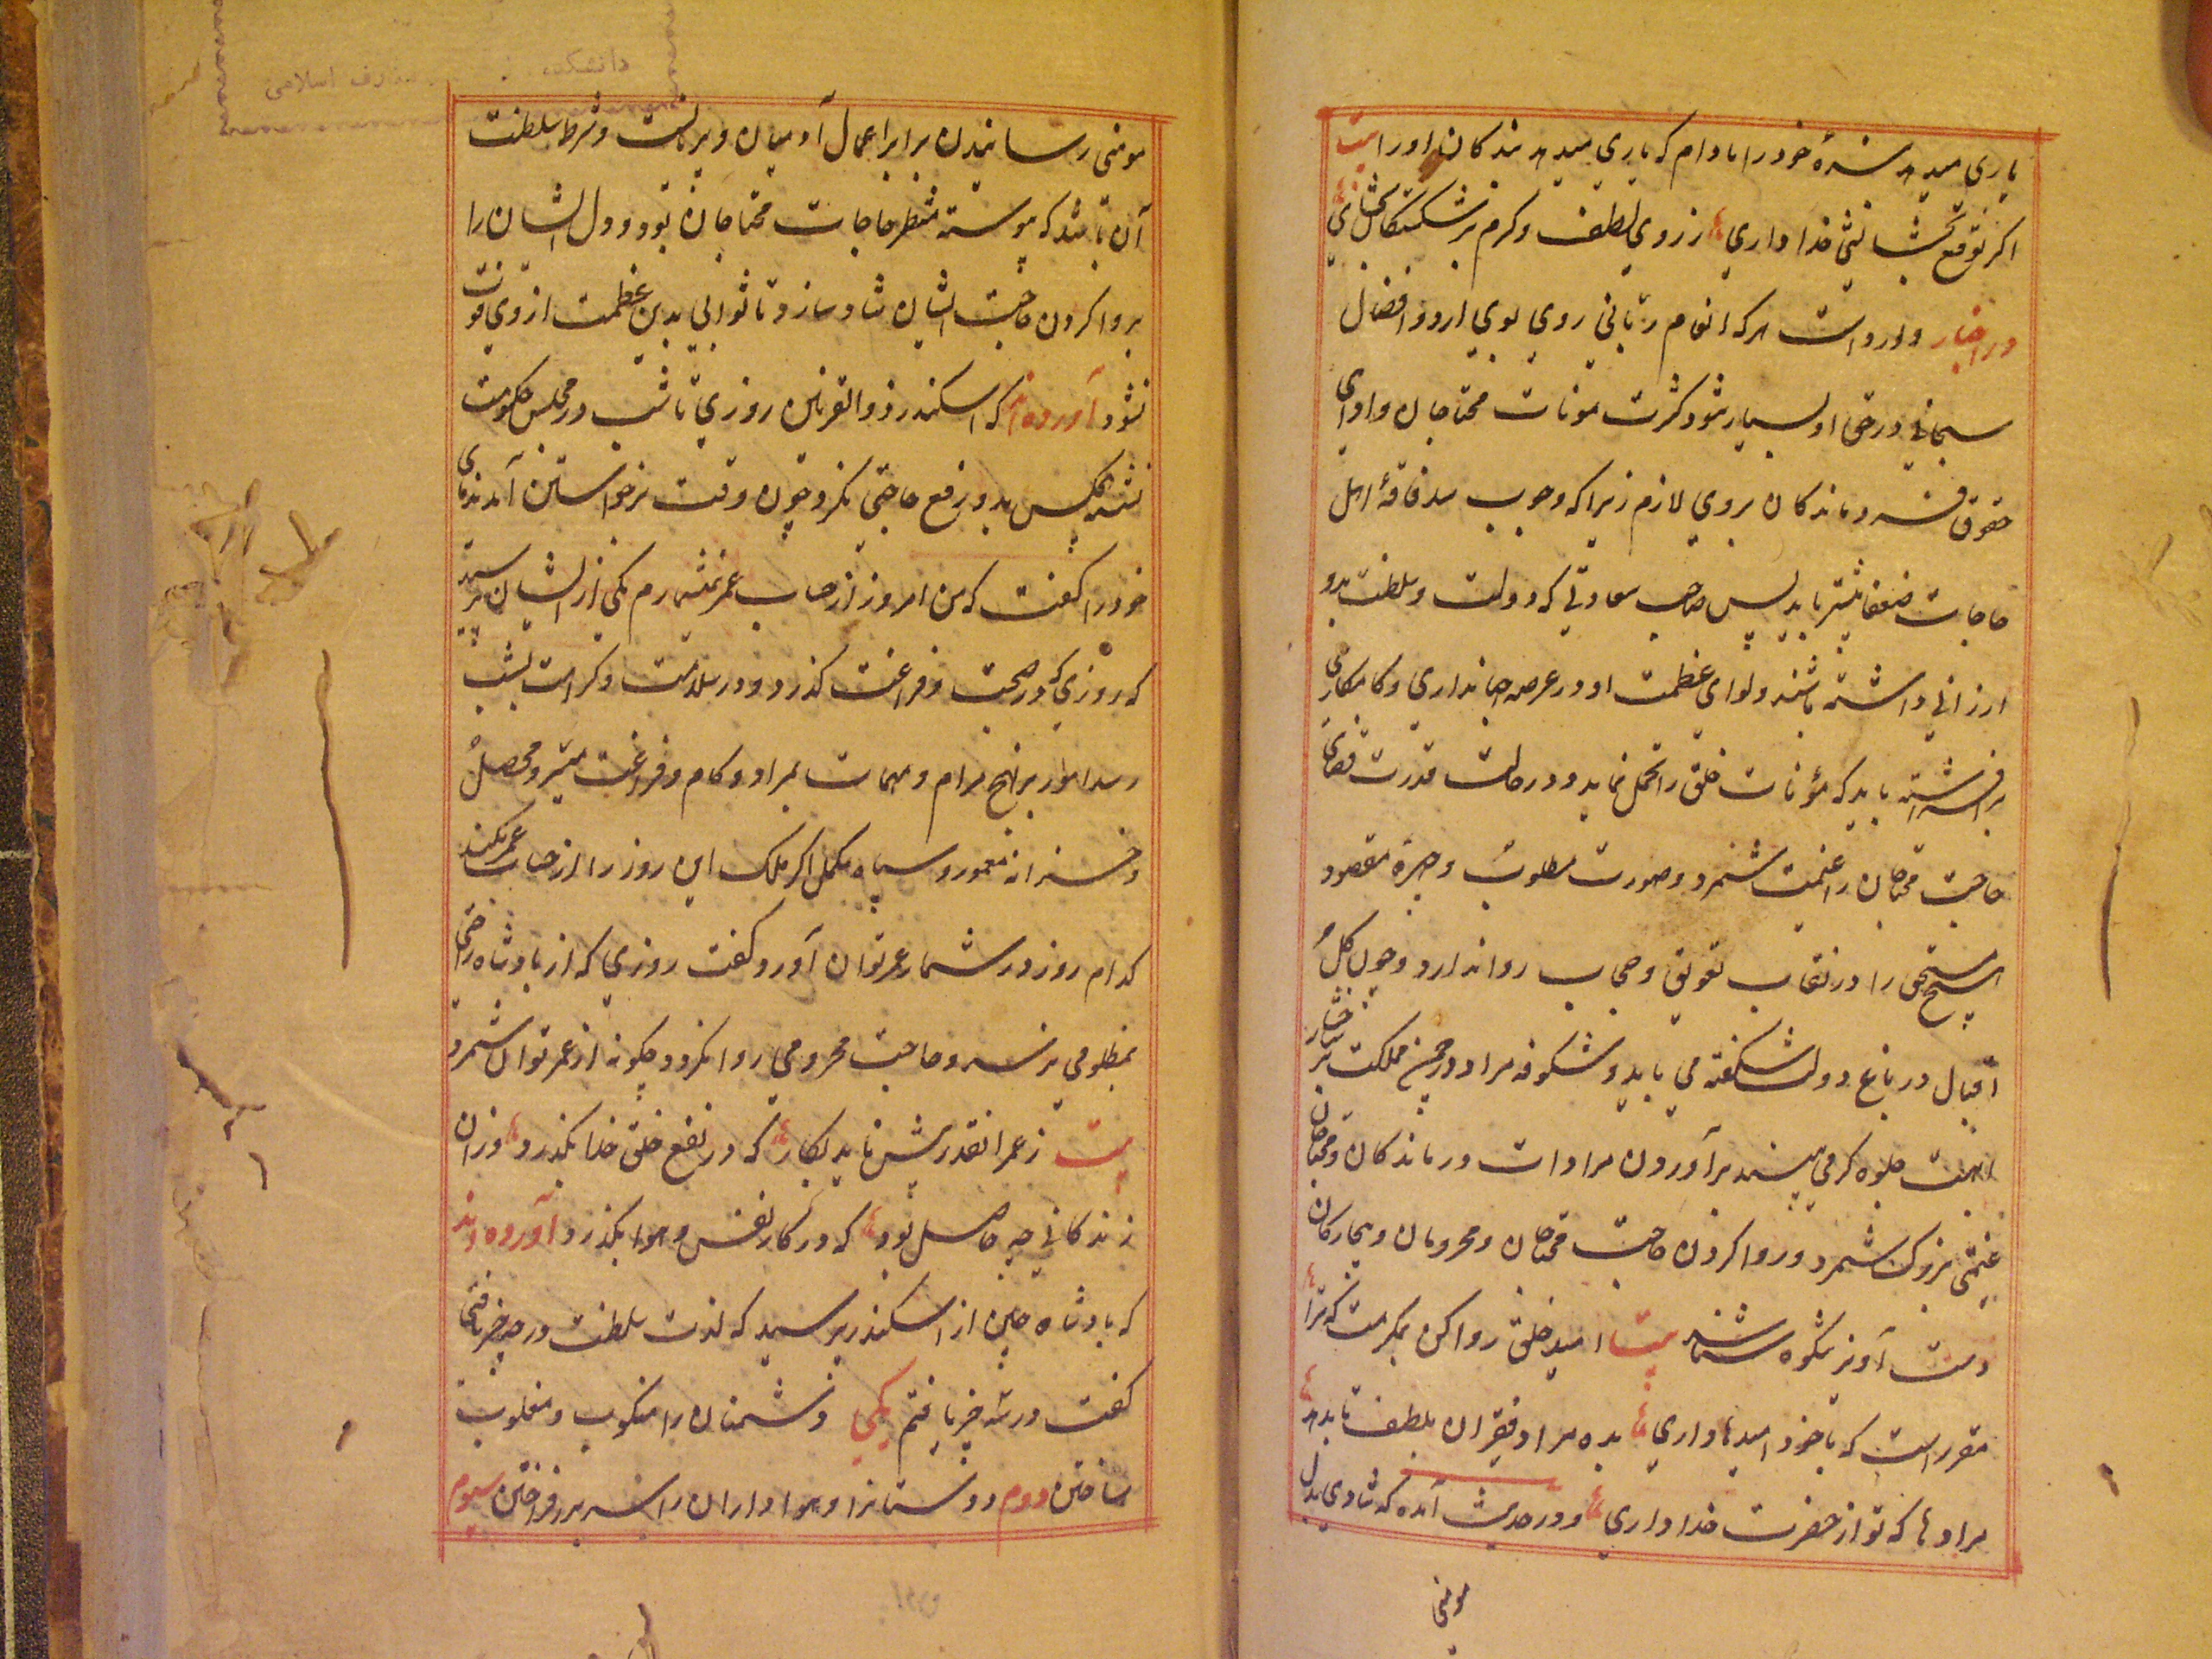 یاری میدهد بندهٔ خود را مادام که یاری میدهد بندکان او را بیت
اکر توقع بخشایش خدا داری ز روی لطف و کرم بر شکستکان بخشای
در اخبار وارد است هر که انعام ربانی روی بوی ارد و افضال
سبحانی در حق او بسیار شود کثرت مونات محتاجان و ادای
حقوق فرو ماندکان بروی لازم زیرا که وجوب سد فاقهٔ اهل
حاجات ضعفا بیشتر باید پس صاحب سعادتی که دولت و سلطنت بدو
ارزانی داشته باشند و لوای عظمت او در عرصه جهانداری و کامکاری
بر افراشته باید که مؤنات خلق را تحمل نماید و در حالت قدرت قضای
حاجت محتاجان را غنیمت شمرد و صورت مطلوب و چهرهٔ مقصود
هیچ مستحق را در نقاب تعویق و حجاب روا ندارد و چون کل
اقبال در باغ دولت شکفته می یابد و شکوفه مراد در چمن مملکت بر
ابهت جلوه کر می بیند بر آوردن مرادات درماندکان و محتاجان
غنیمتی بزرک شمرد و روا کردن حاجت محتاجان و محرومان و بیچارکان
دست آویز شکوه شناسد بیت امید خلق روا کن بمکرمت که ترا
مقرر است که با خود امیدها داری بده مراد فقیران بلطف تا بدهد
مرادها که تو از حضرت خدا داری و در حدیث آمده که شادی بدل
مومنی
مومنی رسانیدن برابر اعمال آدمیان و پریانست و شرط سلطنت
آن باشد که پیوسته منتظر حاجات محتاجان بود و دل ایشان را
بروا کردن حاجت ایشان شاد سازد تا ثوابی بدین عظمت از وی فوت
نشود آورده اند که اسکندر ذو القرنین روزی تا شب در مجلس حکومت
نشست هیچکس بدو رفع حاجتی نکرد چون وقت برخواستن آمد ندمای
خود را کفت که من امروز از حساب عمر نمیشمارم یکی از ایشان پرسید
که روزی که در صحت و فراغت کذرد و در سلامت و کرامت بشب
رسد امور بر نهج مرام و مهمات بمراد و کام و فراغت میسر و محصل
و خزانه معمور و سپاه مکمل اکر ملک این روز را از حساب عمر نکند
کدام روز در شمار عمر توان آورد کفت روزی که از پادشاه راحتی
بمظلومی نرسد و حاجت محرومی روا نکردد چکونه از عمر توان شمرد
بیت ز عمر انقدر بیش ناید بکار که در نفع خلق خدا بکذرد وزان
زندکانی چه حاصل بود که در کار نفس و هوا بکذرد آورده اند
که پادشاه چین از اسکندر پرسید که لذت سلطنت در چه چیز یافتی
کفت در سه چیز یافتم یکی دشمنان را منکوب و مغلوب
ساختن دوم دوستانرا و هواداران را سر بر افراختن سیوم